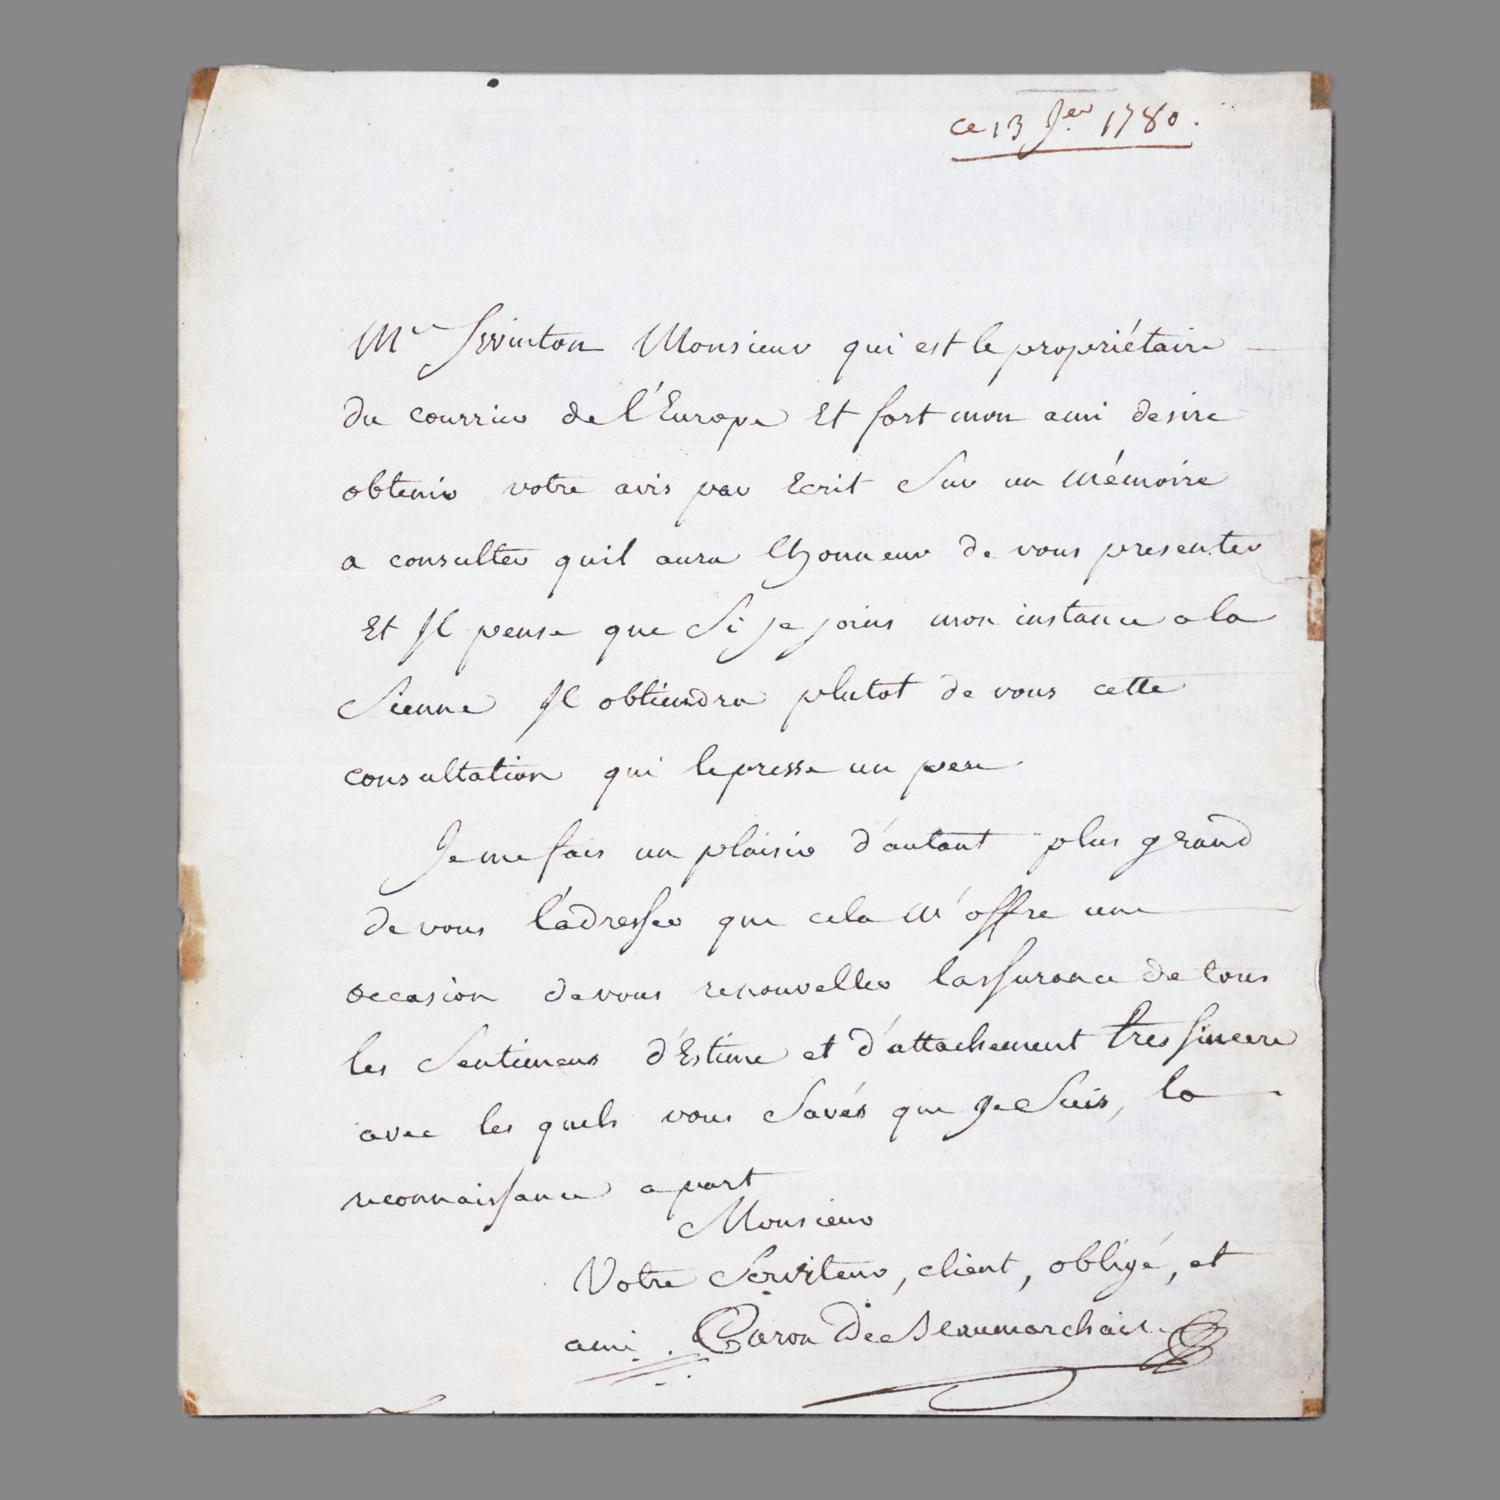 ce 13 Jer 1780.
Mr Swinton Monsieur qui est le propriétaire
du courrier de l'Europe Et fort mon ami desire
obtenir votre avis par Ecrit Sur un mémoire
a consulter quil aura lhonneur de vous presenter
Et Il pense que Si je joins mon instance a la
Sienne Il obtiendra plutot de vous cette
consultation qui le presse un peu
Je me fais un plaisir d'autant plus grand
de vous l'adresser que cela m'offre une
occasion de vous renouveller lassurance de tous
les Sentimens d'Estime et d'attachement tres sincere
avec les quels vous Savés que je Suis, la
reconnaissance a part
Monsieur
Votre Serviteur, client, obligé, et
ami. Caron De Beaumarchais.